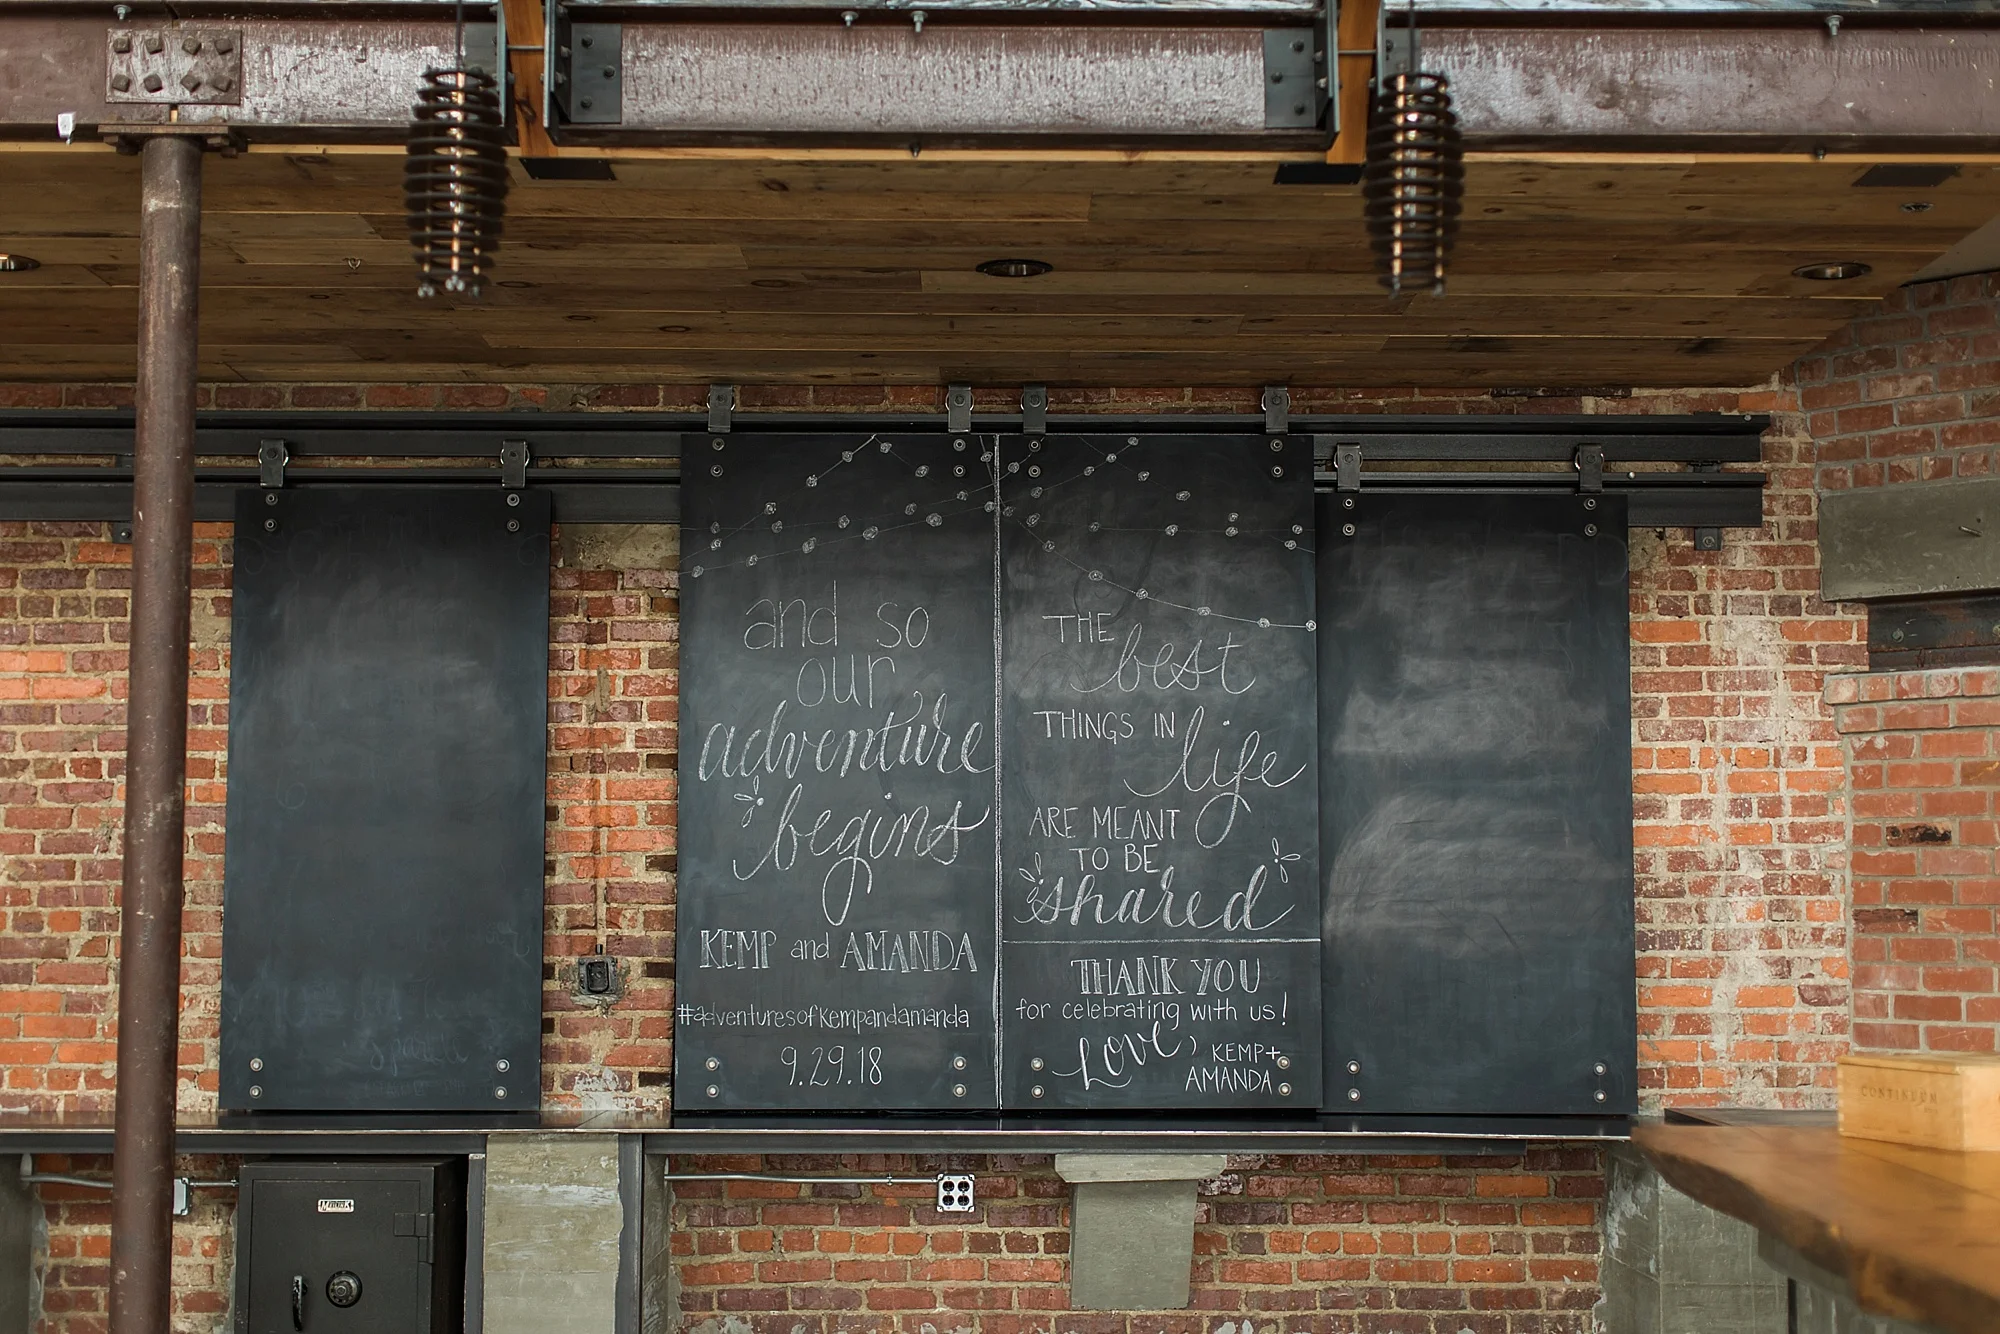 and so
our
adventure
begins
KEMP and AMANDA
#adventuresofkempandamanda
9.29.18
THE best
THINGS IN life
ARE MEANT
TO BE
shared
THANK YOU
for celebrating with us!
Love, KEMP+
AMANDA
CONTINUUM